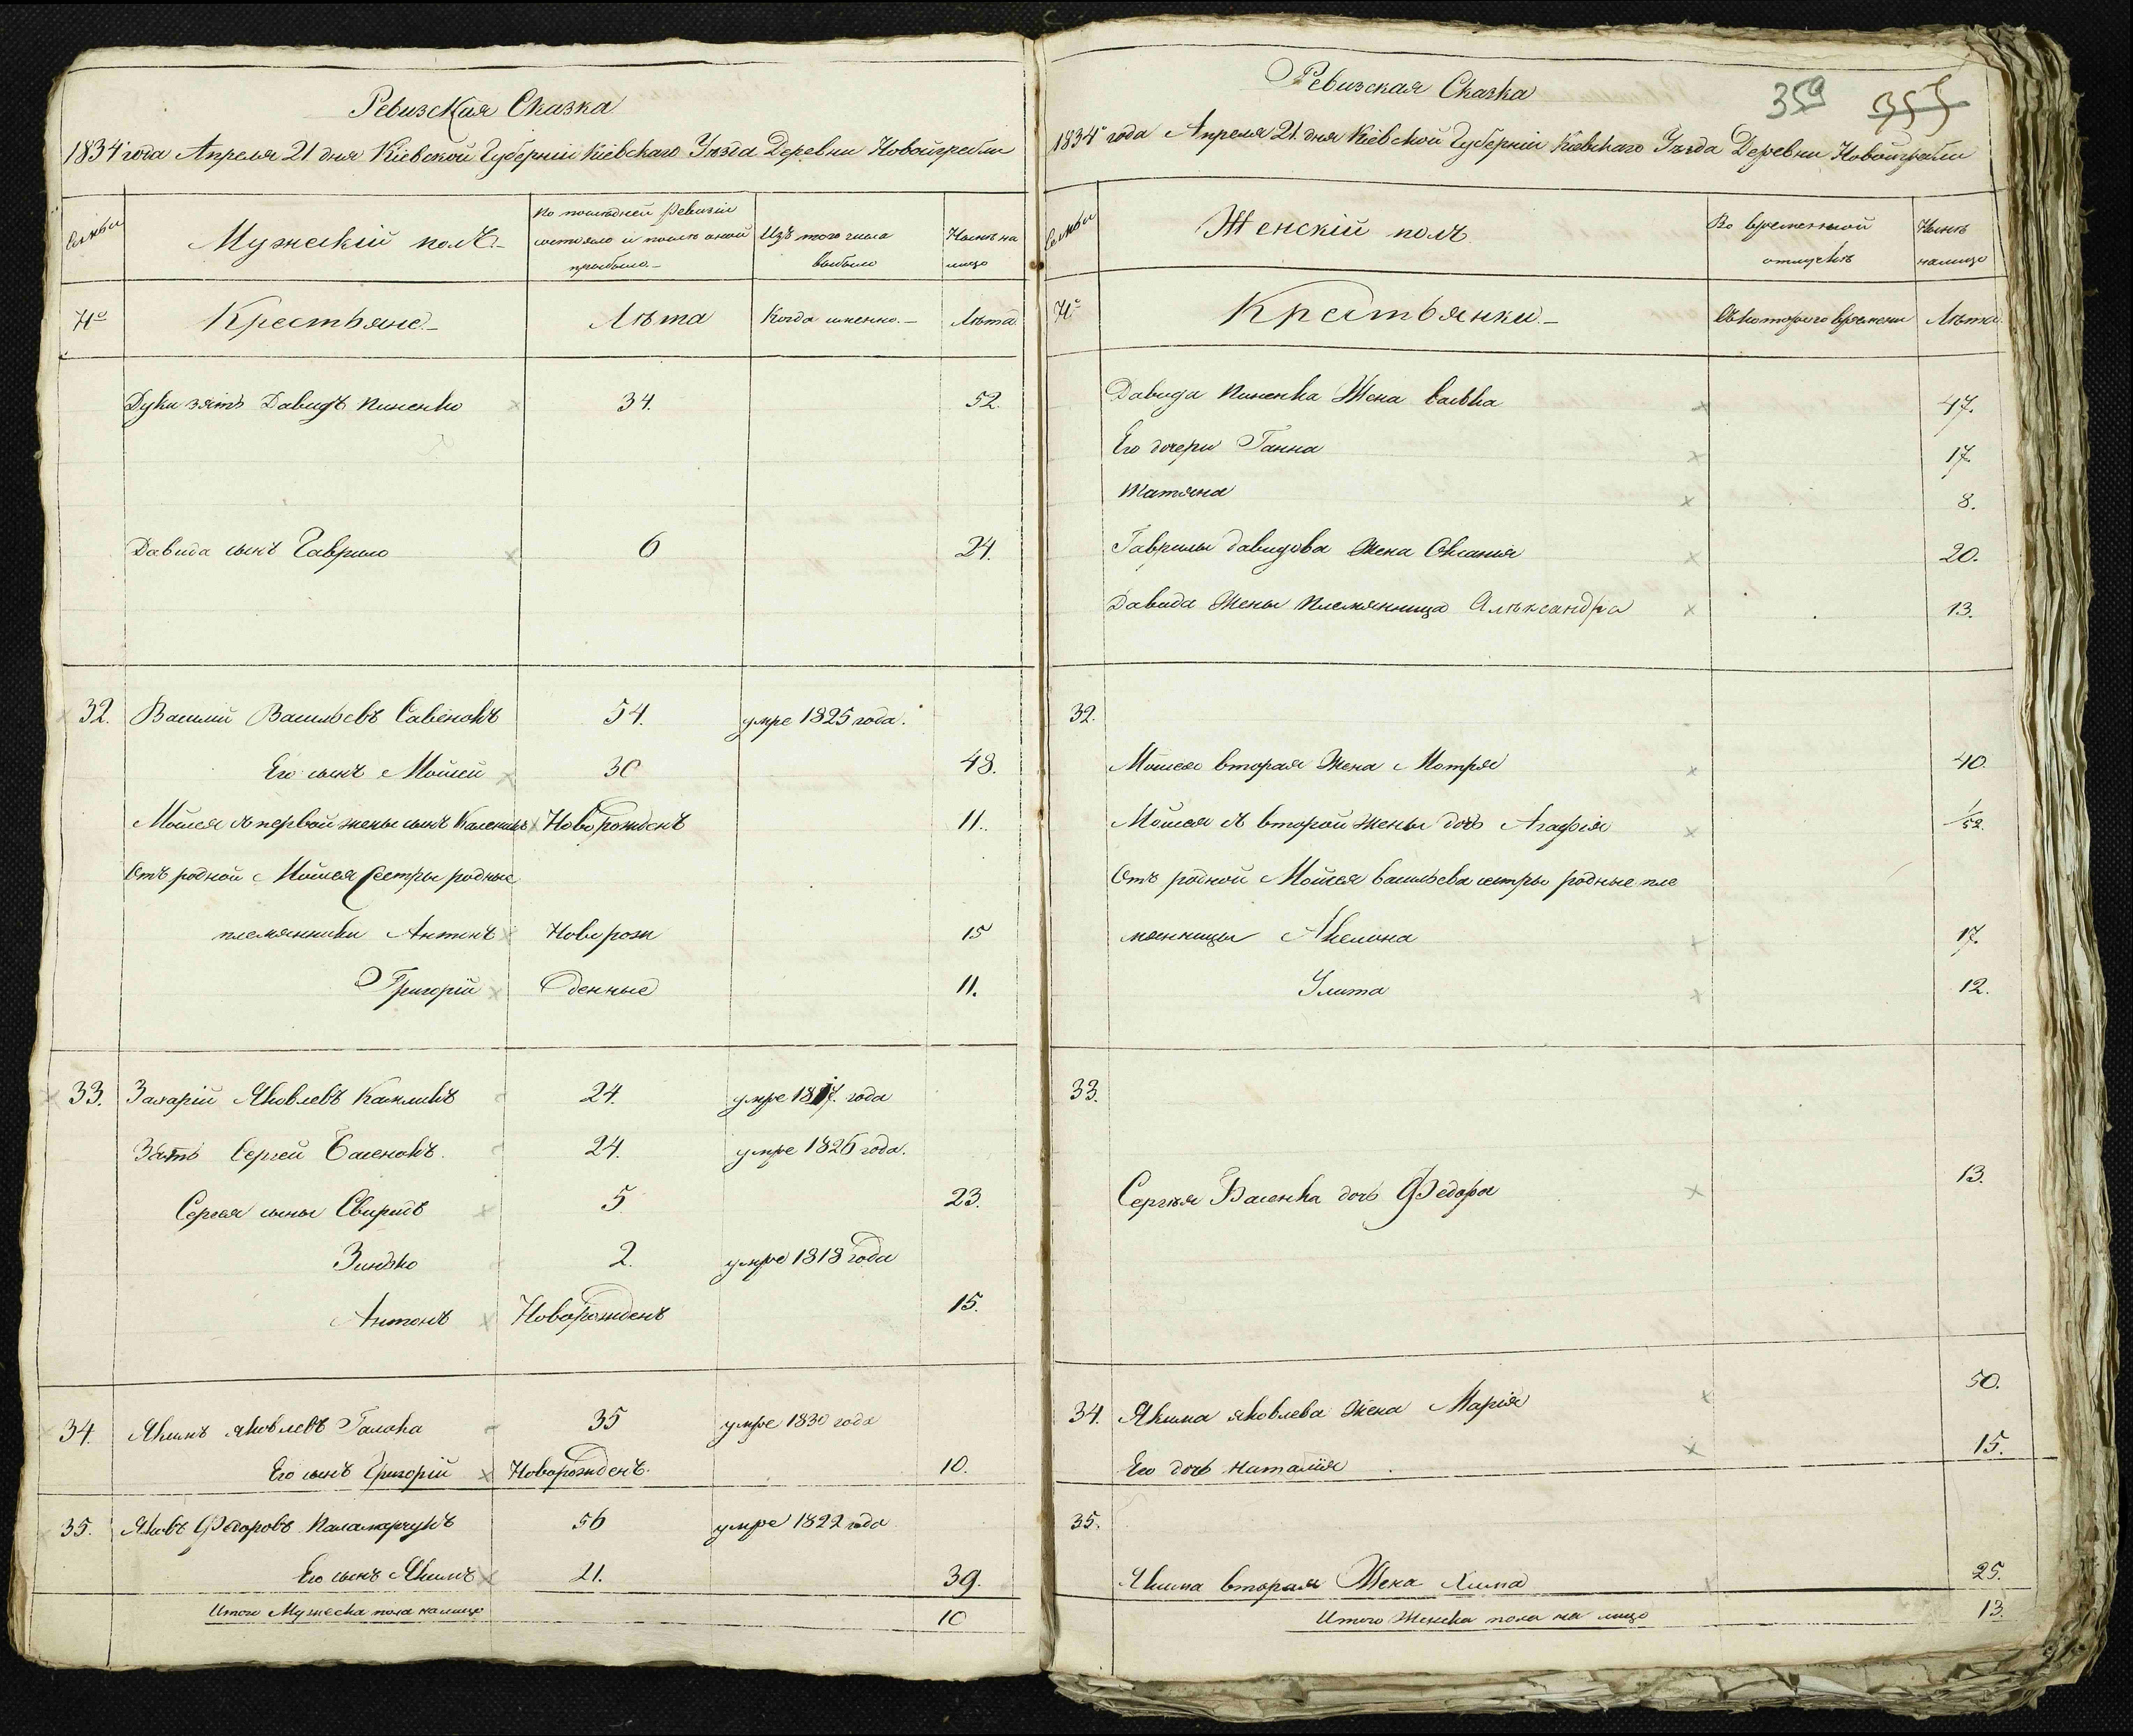 Ревизская Сказка
1834 года Апреля 21 дня Кіевской Губерніи Кіевскаго Уѣзда Деревни Новойгребли
Семьи
Мужескій полъ
По последней Ревизіи состояло и после оной прибыло
Изъ того числа выбыло
Нынѣ на лицо
№
Крестьяне
Лѣта
Когда именно
Лѣта
зять Давидъ 34. 52.
Давида сынъ Гаврило 6 24.
32. Василий Васильевъ Савенокъ 54. умре 1825 года.
Его сынъ Мойсей 30 48.
Мойсея съ первой жены сынъ Каленикъ Новорожденъ 11.
Отъ родной Мойсея Сестры родные
племянники Антонъ Новорож 15
Григорій денные 11.
33. Захарій Яковлевъ 24. умре 1817. года
Зять Сергей Басенокъ. 24. умре 1826 года.
Сергея сыны Свиридъ 5 23.
Зинько 2. умре 1818 года
Антонъ Новорожденъ 15.
34. Якимъ Яковлевъ 35 умре 1830 года
Его сынъ Григорій Новорожденъ. 10.
35. Яковъ Федоровъ Паламарчукъ 56 умре 1822 года
Его сынъ Якимъ 21. 39.
Итого Мужеска пола налицо 10
Ревизская Сказка
359 355
1834 года Апреля 21 дня Кіевской Губерніи Кіевскаго Уѣзда Деревни Новойгребли
Семьи
Женскій полъ
Во временной отлучкѣ
Нынѣ налицо
№
Крестьянки
Съ котораго времени
Лѣта
Давида Жена 47.
Его дочери Ганна 17.
Татяна 8.
Гаврилы Давидова Жена 20.
Давида Жены Племянница Алѣксандра 13.
32.
Мойсея вторая Жена Мотря 40.
Мойсея съ второй Жены дочь Агафія 1/52
Отъ родной Мойсея Васильева сестры родные пле
мянницы Акелина 17.
Улита 12.
33.
Сергѣя Басенка дочь Федора 13.
34. Якима Яковлева Жена Марія 50.
Его дочь Наталія 15.
35.
Якима вторая Жена Хима 25.
Итого Женска пола на лицо 13.